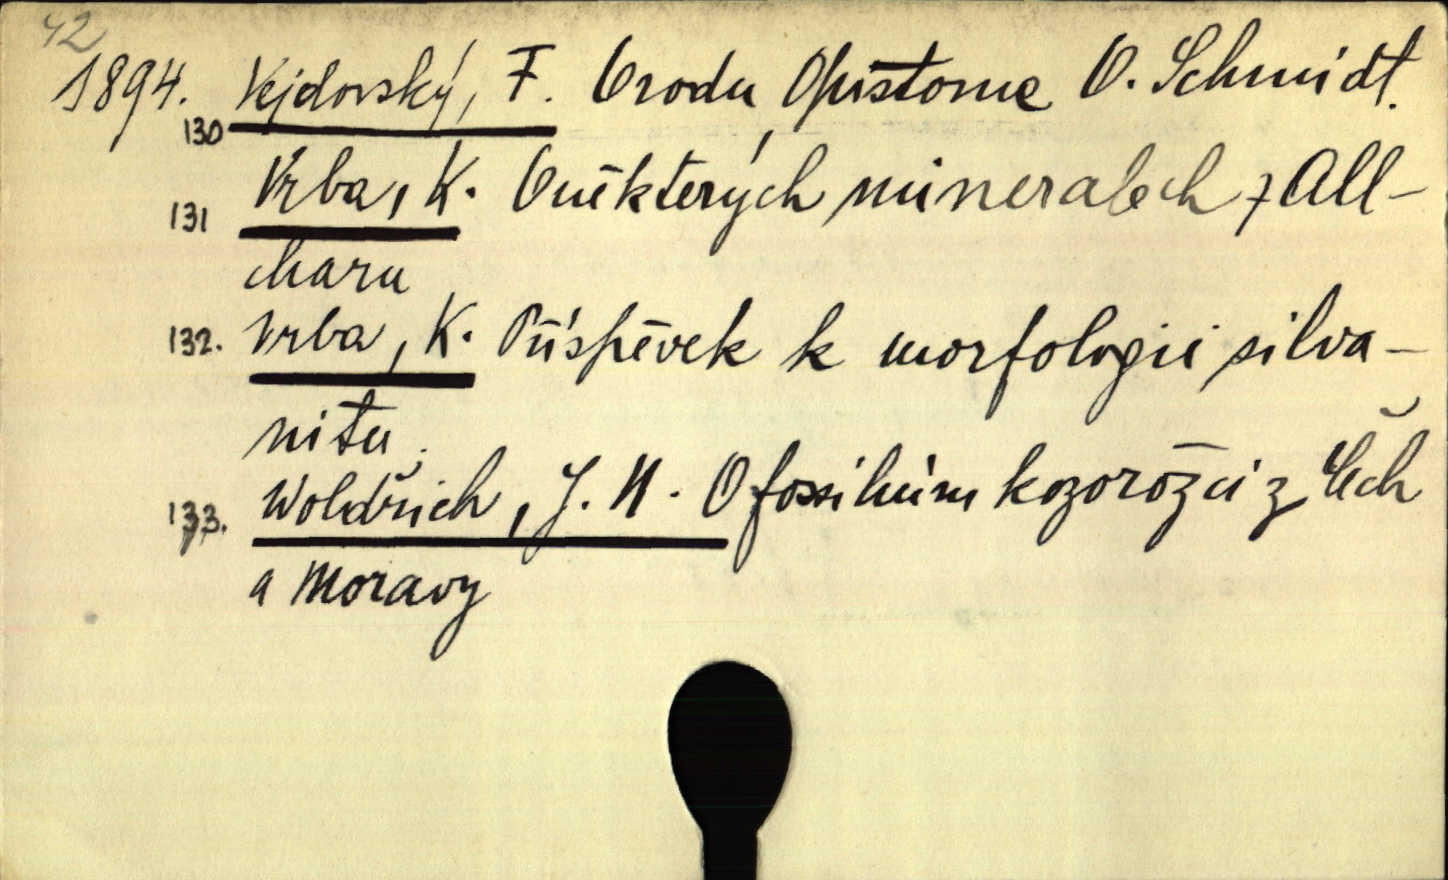 42
1894. Vejdovský, F. O rodu Opistome O. Schmidt.
130
131 Vrba, K. O některých mineralech z All-
charu
132. Vrba, K. Příspěvek k morfologii silva-
nitu.
133. Woldřich, J. N. O fossilním kozorožci z Čech
a Moravy